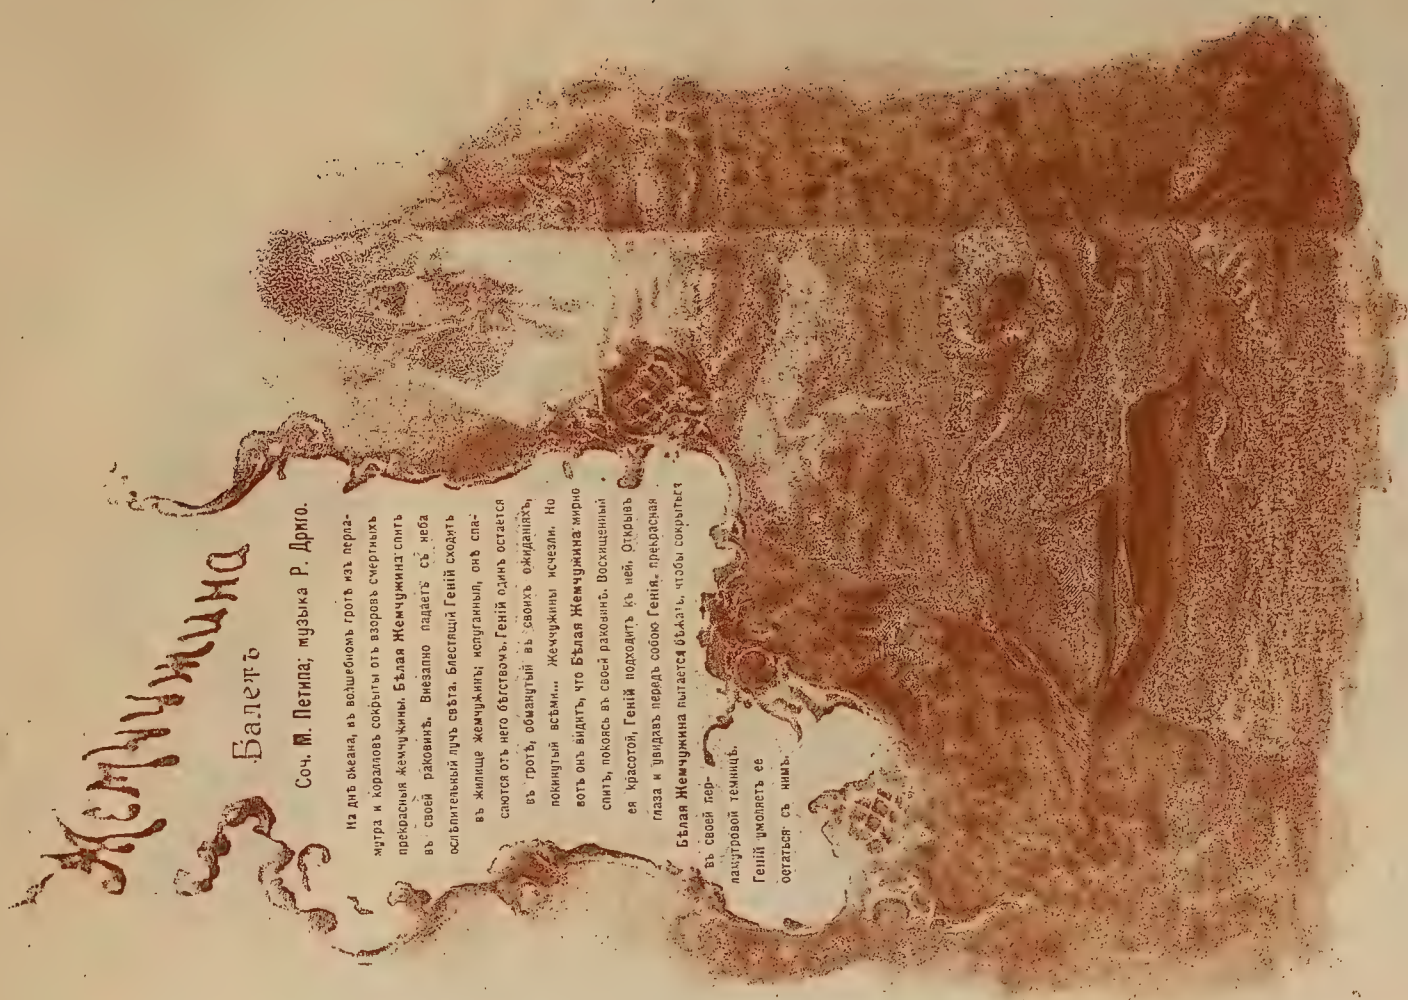 Жемчужина
Балетъ
Соч. М. Петипа; музыка Р. Дриго.
На днѣ океана, въ волшебномъ гротѣ изъ перла-
мутра и коралловъ сокрыты отъ взоровъ смертныхъ
прекрасныя жемчужины. Бѣлая Жемчужина спитъ
въ своей раковинѣ. Внезапно падаетъ съ неба
ослѣпительный лучъ свѣта. Блестящій Геній сходитъ
въ жилище жемчужинъ; испуганныя, онѣ спа-
саются отъ него бѣгствомъ. Геній одинъ остается
въ гротѣ, обманутый въ своихъ ожиданіяхъ,
покинутый всѣми... Жемчужины исчезли. Но
вотъ онъ видитъ, что Бѣлая Жемчужина мирно
спитъ, покоясь въ своей раковинѣ. Восхищенный
ея красотой, Геній подходитъ къ ней. Открывъ
глаза и увидавъ передъ собою Генія, прекрасная
Бѣлая Жемчужина пытается бѣжать, чтобы сокрыться
въ своей пер-
ламутровой темницѣ.
Геній умоляетъ ее
остаться съ нимъ.